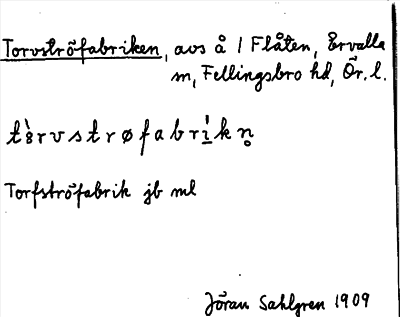 Torvströfabriken, avs å / Flåten, Ervalla
sn, Fellingsbro hd, Ör. l.
tòrvstrøfabrik̥n̥
Torfströfabrik jb ml
Jöran Sahlgren 1909